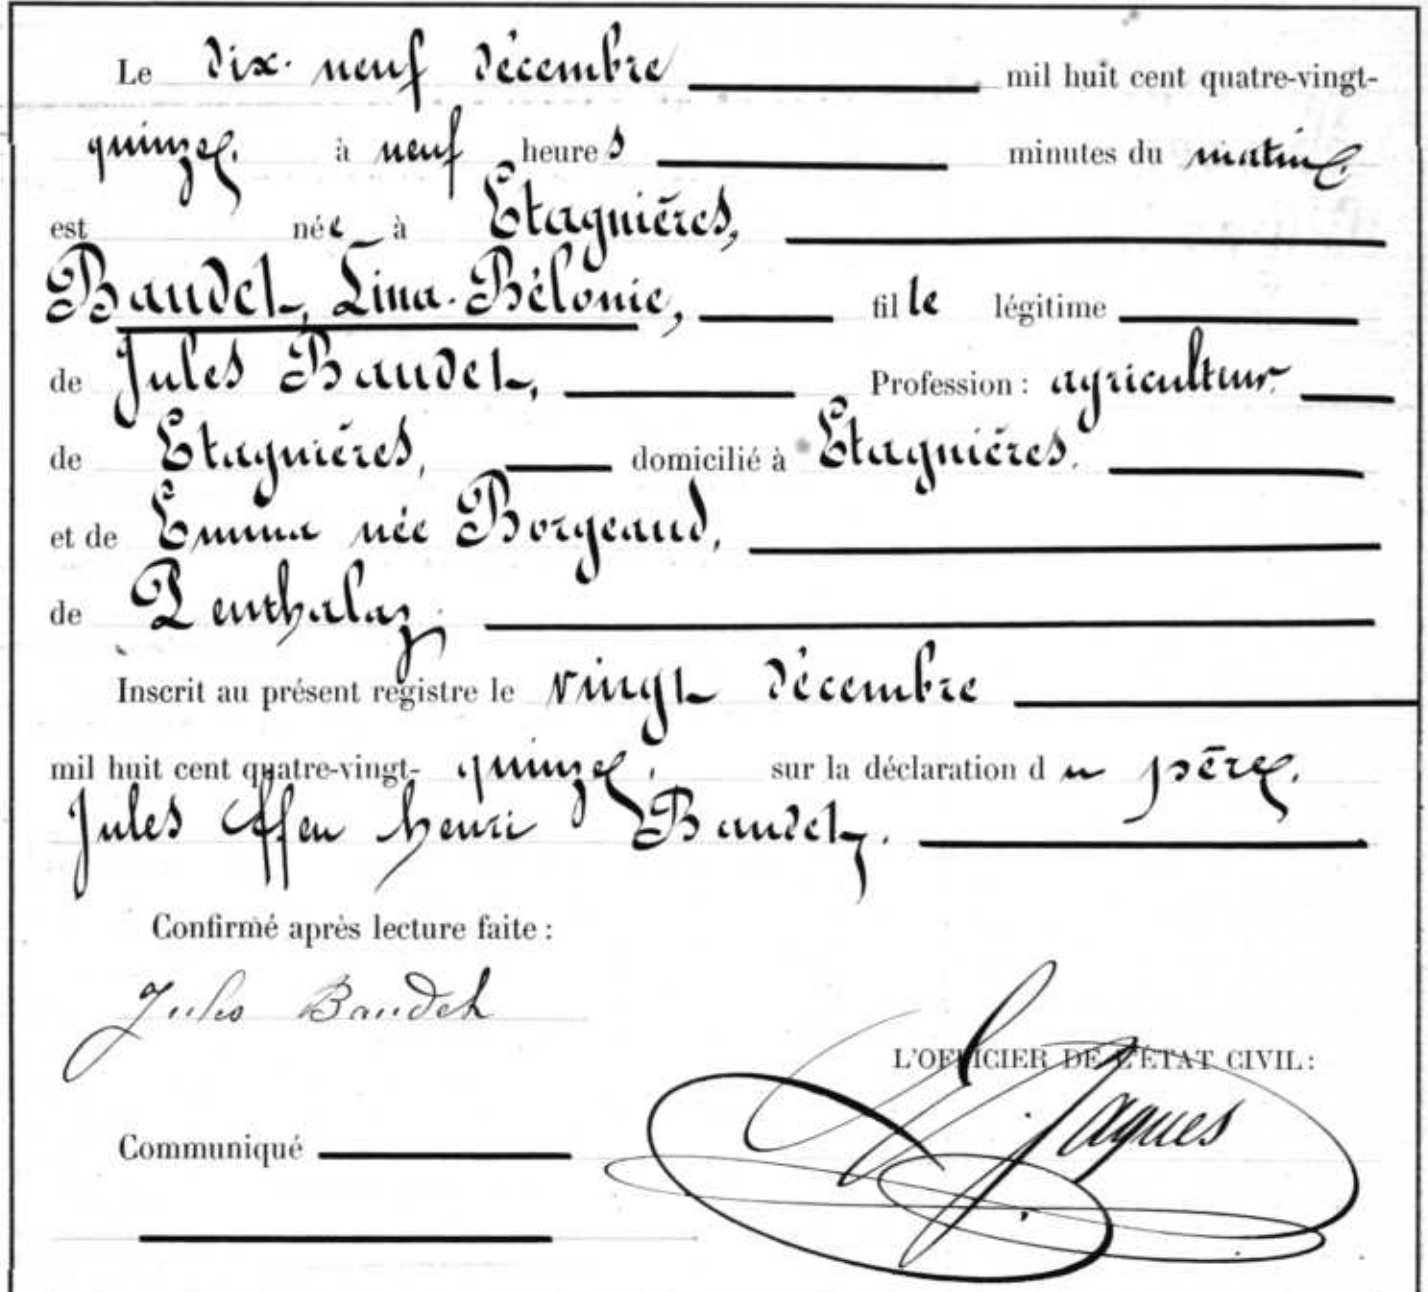 Le dix-neuf décembre mil huit cent quatre-vingt-
quinze. à neuf heures minutes du matin
est née à Etagnières,
Baudet, Lina-Bélonie, fille légitime
de Jules Baudet, Profession : agriculteur
de Etagnières, domicilié à Etagnières.
et de Emma née Borgeaud,
de Penthalaz.
Inscrit au présent registre le vingt décembre
mil huit cent quatre-vingt- quinze, sur la déclaration du père.
Jules henri Baudet.
Confirmé après lecture faite :
Jules Baudet
L'OFFICIER DE L'ÉTAT CIVIL :
Jaques
Communiqué